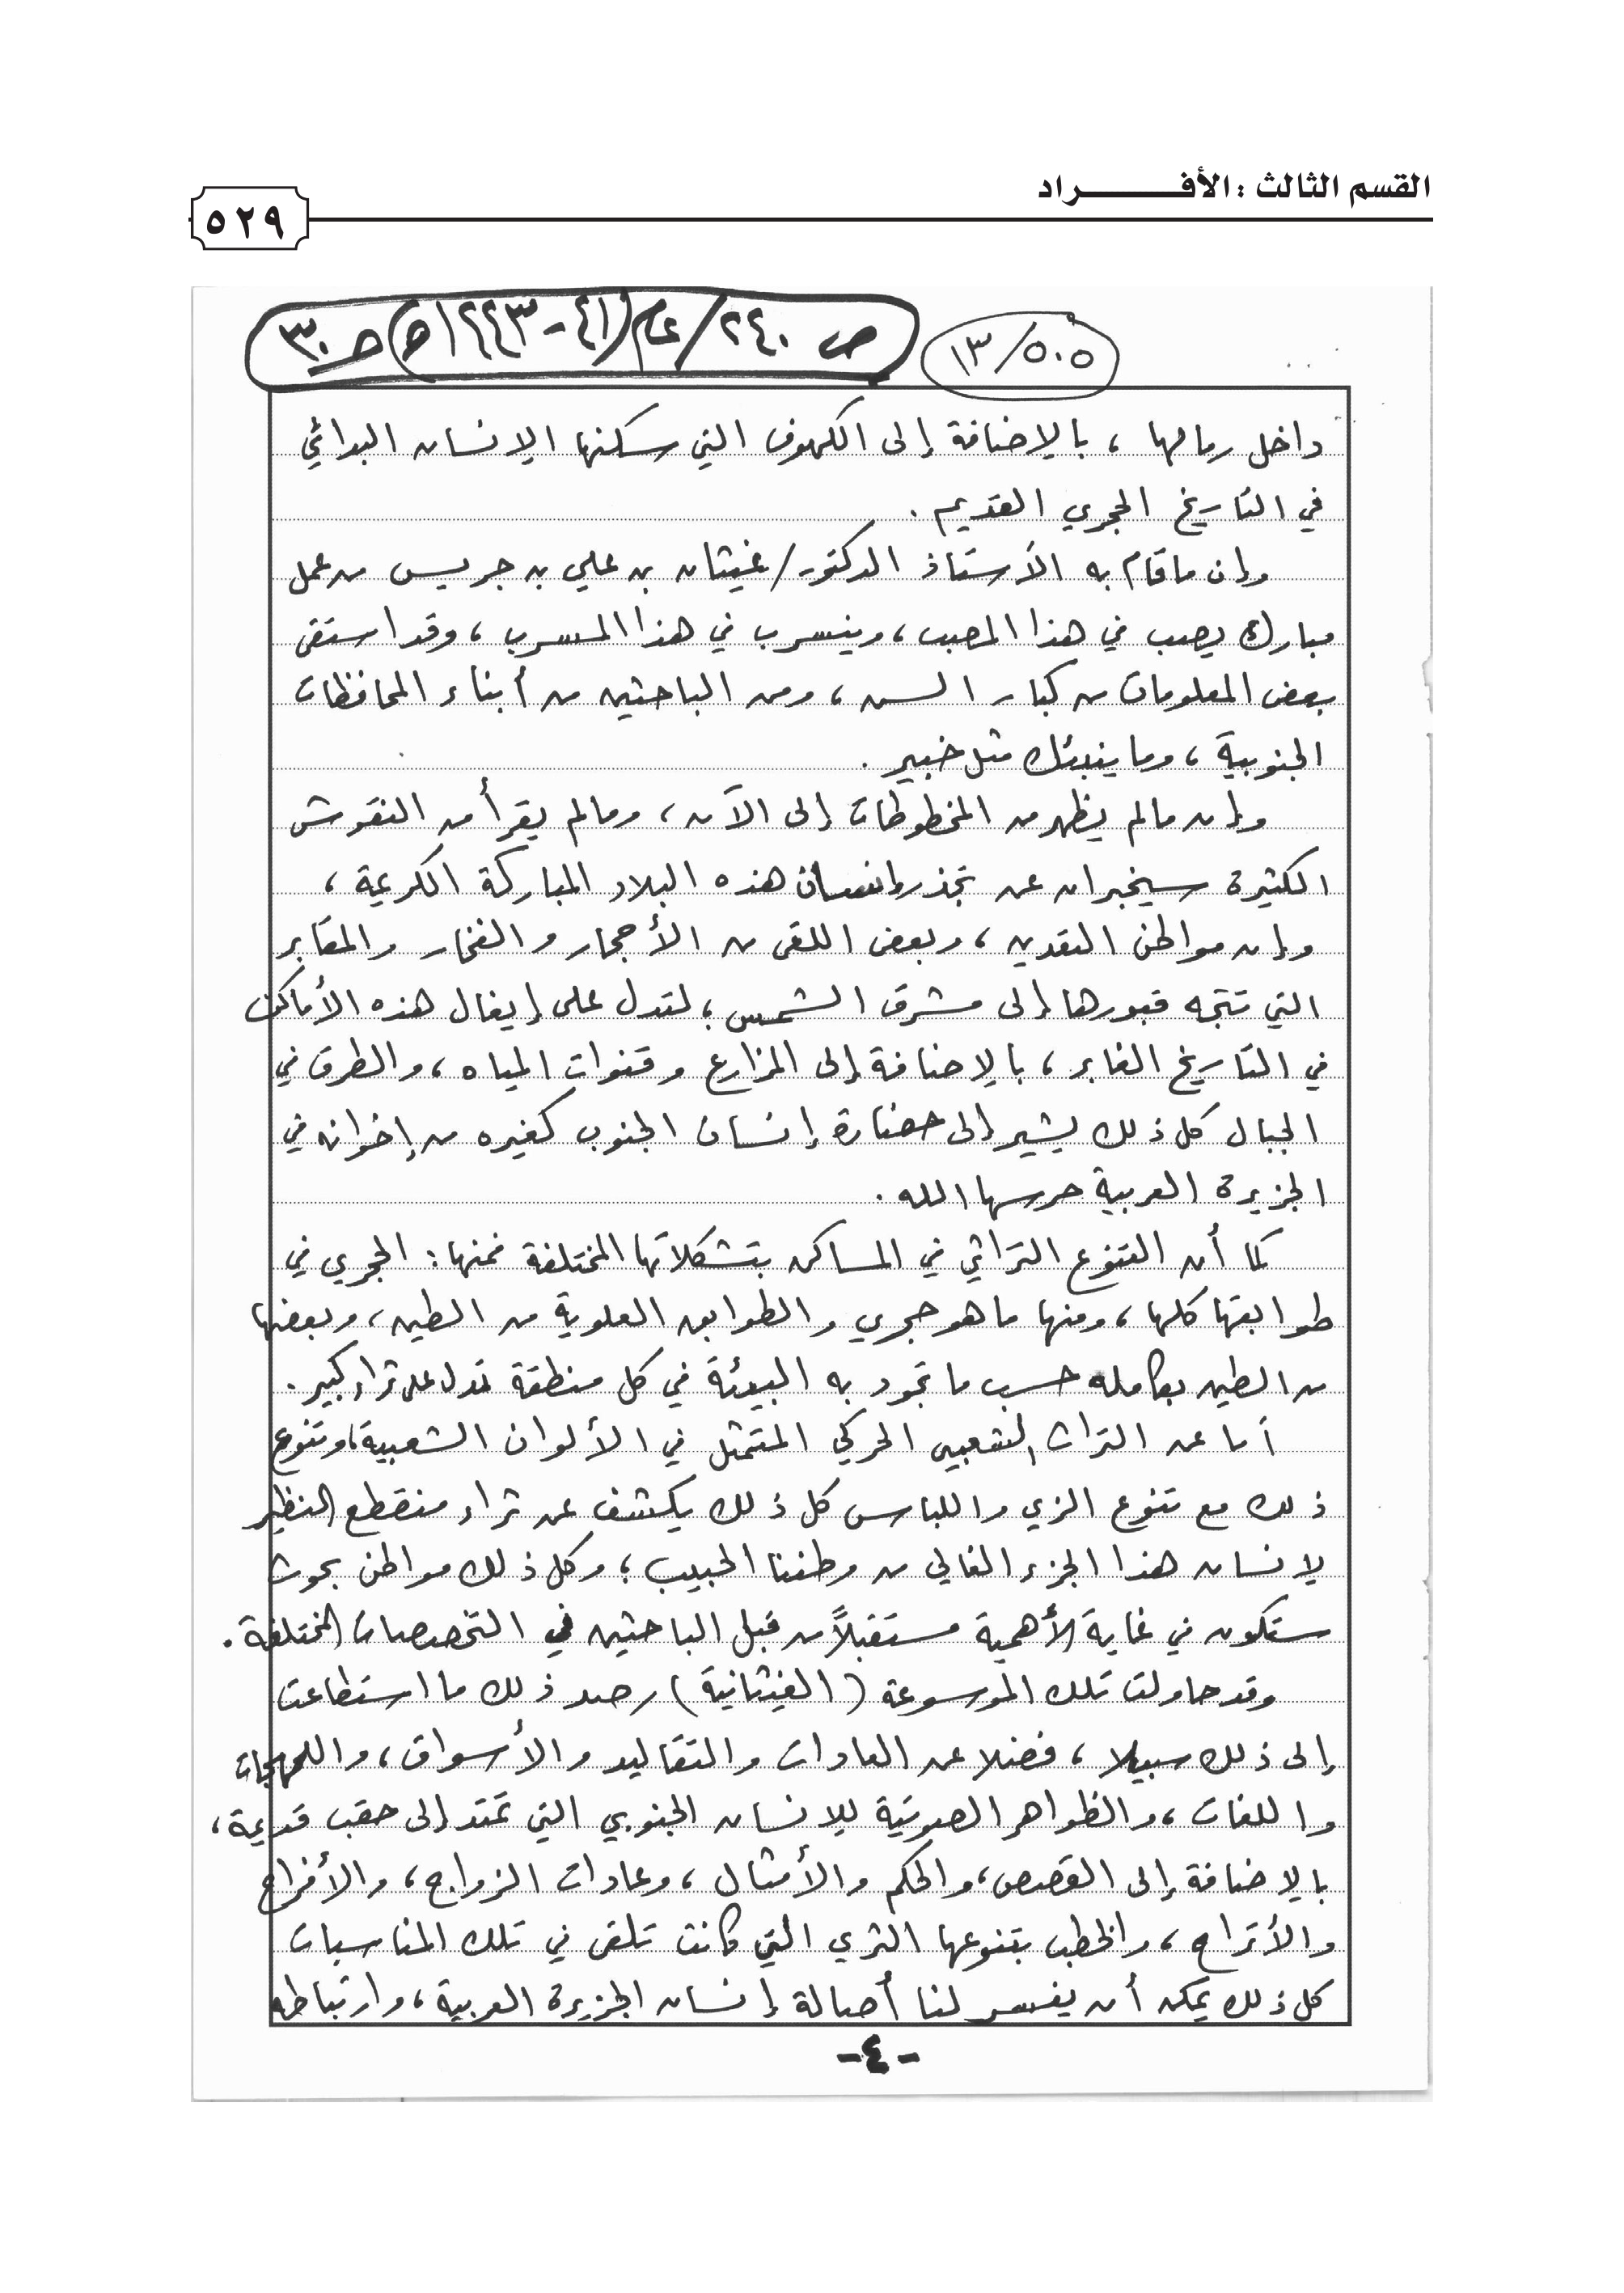 القسم الثالث : الأفـــــــراد
٥٢٩
١٣/٥٠٥
ص ٢٤٠/عام(٤١-١٤٤٣هـ)حـ٣٠
داخل رمالها ، بالإضافة إلى الكهوف التي سكنها الإنسان البدائي
في التاريخ الحجري القديم .
وإن ما قام به الأستاذ الدكتور/ غيثان بن علي بن جريس من عمل
مبارك يصب في هذا المصب ، وينسرب في هذا المسرب ، وقد استقى
بعض المعلومات من كبار السن ، ومن الباحثين من أبناء المحافظات
الجنوبية ، وما ينبئك مثل خبير .
وإن مالم يظهر من المخطوطات إلى الآن ، ومالم يقرأ من النقوش
الكثيرة سيخبران عن تجذر إنسان هذه البلاد المباركة الكريمة ،
وإن مواطن التعدين ، وبعض اللقى من الأحجار والفخار والمقابر
التي تتجه قبورها إلى مشرق الشمس ؛ لتدل على إيغال هذه الأماكن
في التاريخ الغابر ، بالإضافة إلى المزارع وقنوات المياه ، والطرق في
الجبال كل ذلك يشير إلى حضارة إنسان الجنوب كغيره من إخوانه في
الجزيرة العربية حرسها الله .
كما أن التنوع التراثي في المساكن بتشكلاتها المختلفة فمنها : الحجري في
طوابقها كلها ، ومنها ما هو حجري والطوابق العلوية من الطين ، وبعضها
من الطين بكامله حسب ما تجود به البيئة في كل منطقة تدل على ثراء كبير .
أما عن التراث الشعبي الحركي المتمثل في الألوان الشعبية، وتنوع
ذلك مع تنوع الزي واللباس كل ذلك يكشف عن ثراء منقطع النظير
لإنسان هذا الجزء الغالي من وطننا الحبيب ؛ وكل ذلك مواطن بحوث
ستكون في غاية الأهمية مستقبلاً من قبل الباحثين في التخصصات المختلفة .
وقد حاولت تلك الموسوعة ( الغيثانية ) رصد ذلك ما استطاعت
إلى ذلك سبيلا ، فضلا عن العادات والتقاليد والأسواق ، واللهجات
واللغات ، والظواهر الصوتية للإنسان الجنوبي التي تمتد إلى حقب قديمة ،
بالإضافة إلى القصص ، والحكم والأمثال ، وعادات الزواج ، والأفراح
والأتراح ، والخطب بتنوعها الثري التي كانت تلقى في تلك المناسبات
كل ذلك يمكن أن يفسر لنا أصالة إنسان الجزيرة العربية ، وارتباطه
-٤-